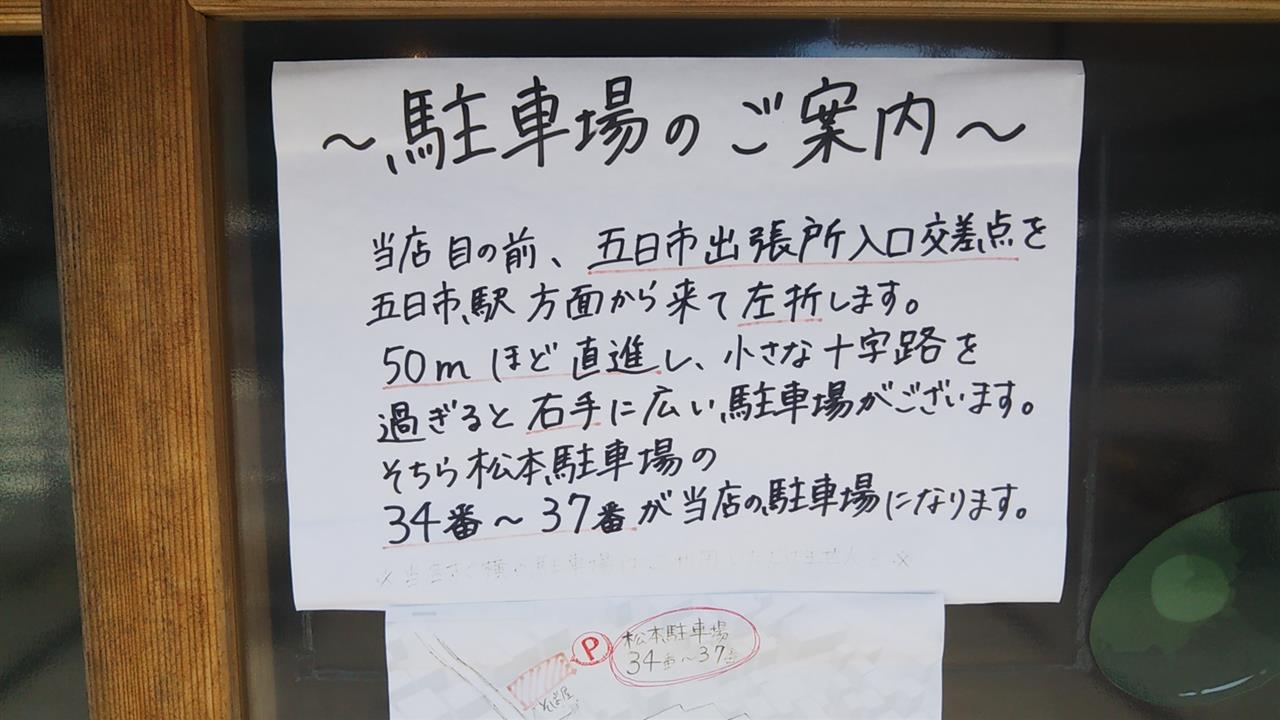 ～駐車場のご案内～
当店目の前、五日市出張所入口交差点を
五日市駅方面から来て左折します。
50mほど直進し、小さな十字路を
過ぎると右手に広い駐車場がございます。
そちら松本駐車場の
34番～37番が当店の駐車場になります。
※当店すぐ横の駐車場はご利用いただけません。※
P
松本駐車場
34番～37番
そば屋